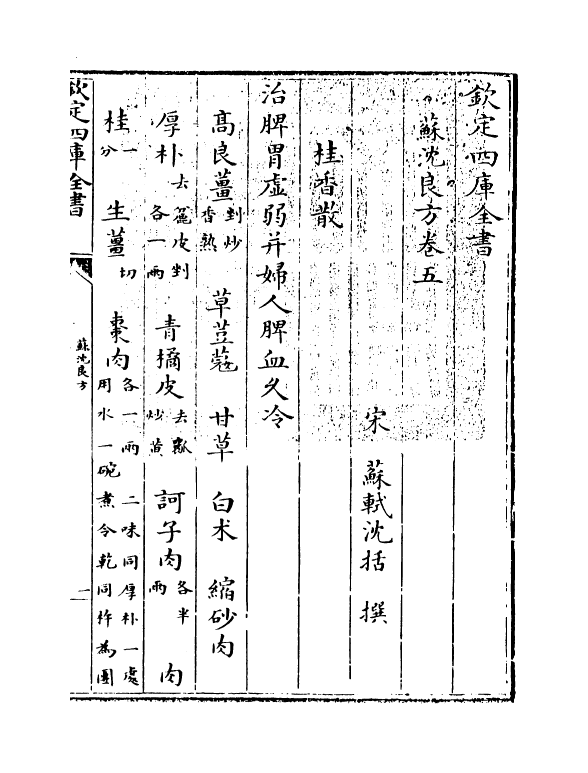 欽定四庫全書
蘇沈良方卷五
宋 蘇軾沈括 撰
桂香散
治脾胃虛弱并婦人脾血久冷
高良薑剉炒香熟 草荳蔲 甘草 白术 縮砂肉
厚朴去麤皮剉各一兩 青橘皮去瓤炒黄 訶子肉各半兩 肉
桂一分 生薑切 棗肉各一兩二味同厚朴一處用水一碗煮令乾同杵為團
欽定四庫全書
蘇沈良方
一